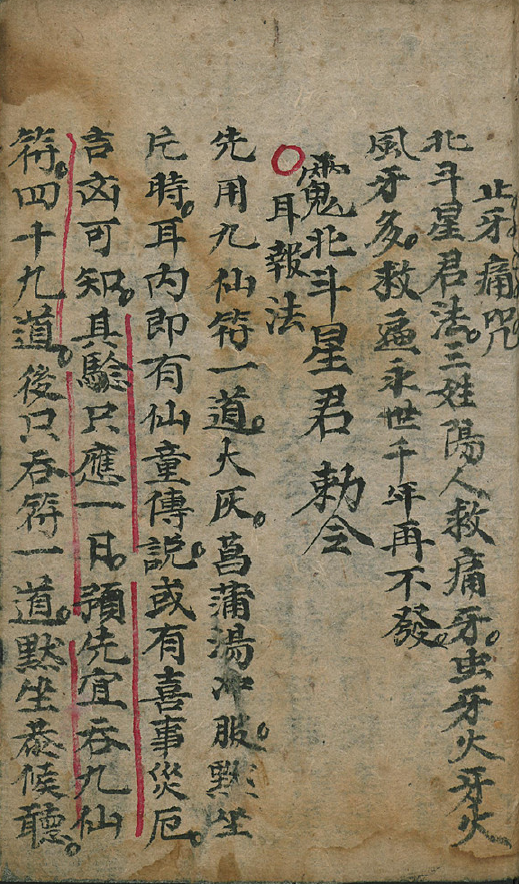 止牙痛咒
北斗星君法。三姓陽人救痛牙。虫牙火牙火
風牙多。救盡永世千年再不發。
北斗星君勅令
耳報法
先用九仙符一道。火灰。菖蒲湯冲服。默坐
片時。耳內即有仙童傳説。或有喜事災厄。
吉凶可知。其驗只應一日。預先宜吞九仙
符。四十九道。後只吞符一道。默坐恭候聽。